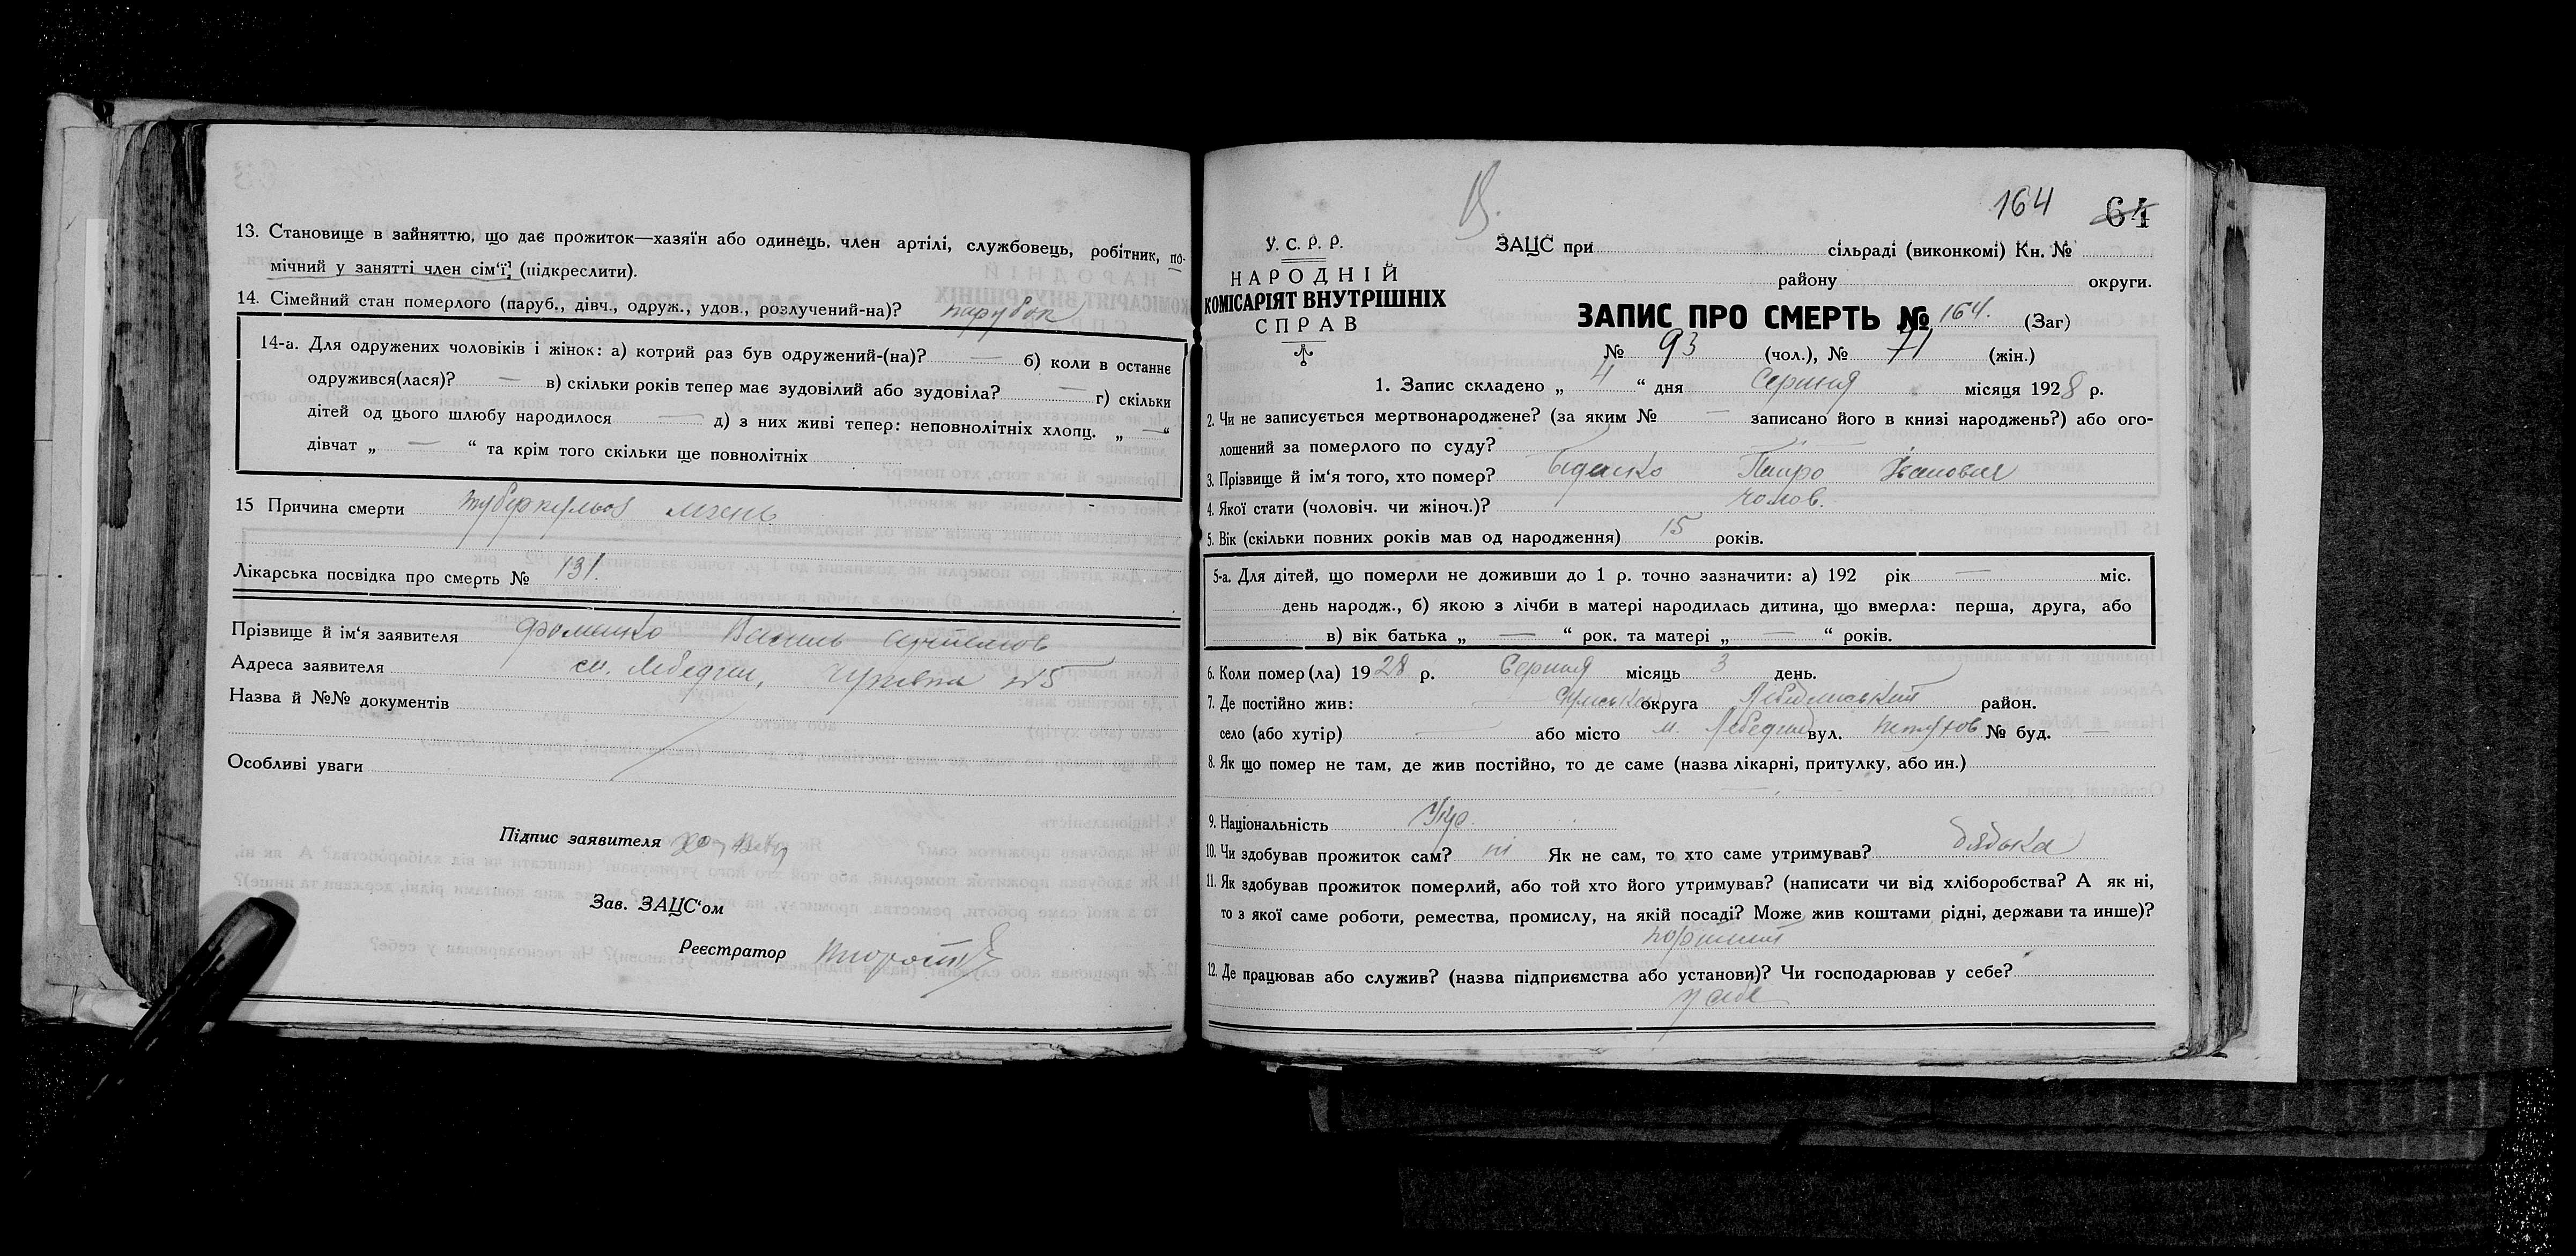 13. Становище в зайняттю, що дає прожиток—хазяїн або одинець, член артілі, службовець, робітник, по-
мічний у занятті член сім'ї, (підкреслити).
14. Сімейний стан померлого (паруб., дівч., одруж., удов., розлучений-на)? парубок
14-а. Для одружених чоловіків і жінок: а) котрий раз був одружений-(на)? — б) коли в останнє
одружився(лася)? — в) скільки років тепер має зудовілий або зудовіла? — г) скільки
дітей од цього шлюбу народилося — д) з них живі тепер: неповнолітніх хлопц. „ — “
дівчат „ — “ та крім того скільки ще повнолітніх
15 Причина смерти туберкульоз легень
Лікарська посвідка про смерть № 131.
Прізвище й ім'я заявителя Фоменко Василь
Адреса заявителя м. Лебедин, №5
Назва й №№ документів
Особливі уваги
Підпис заявителя
Зав. ЗАЦС'ом
Реєстратор
164 64
У. С. Р. Р.
НАРОДНІЙ
КОМІСАРІЯТ ВНУТРІШНІХ
СПРАВ
ЗАЦС при сільраді (виконкомі) Кн. №
району округи.
ЗАПИС ПРО СМЕРТЬ № 164. (Заг)
№ 93 (чол.), № 71 (жін.)
1. Запис складено „ 4 “ дня Серпня місяця 1928 р.
2. Чи не записується мертвонароджене? (за яким № — записано його в книзі народжень?) або ого-
лошений за померлого по суду?
3. Прізвище й ім'я того, хто помер? Петро Іванович
4. Якої стати (чоловіч. чи жіноч.)? чолов.
5. Вік (скільки повних років мав од народження) 15 років.
5-а. Для дітей, що померли не доживши до 1 р. точно зазначити: а) 192 рік — міс.
день народж., б) якою з лічби в матері народилась дитина, що вмерла: перша, друга, або
в) вік батька „ — “ рок. та матері „ — “ років.
6. Коли помер(ла) 1928 р. Серпня місяць 3 день.
7. Де постійно жив: — Сумська округа Лебединський район.
село (або хутір) — або місто м. Лебедин вул. № буд. —
8. Як що помер не там, де жив постійно, то де саме (назва лікарні, притулку, або ин.)
9. Національність Укр.
10. Чи здобував прожиток сам? ні Як не сам, то хто саме утримував? дядька
11. Як здобував прожиток померлий, або той хто його утримував? (написати чи від хліборобства? А як ні,
то з якої саме роботи, ремества, промислу, на якій посаді? Може жив коштами рідні, держави та инше)?
12. Де працював або служив? (назва підприємства або установи)? Чи господарював у себе?
у себе